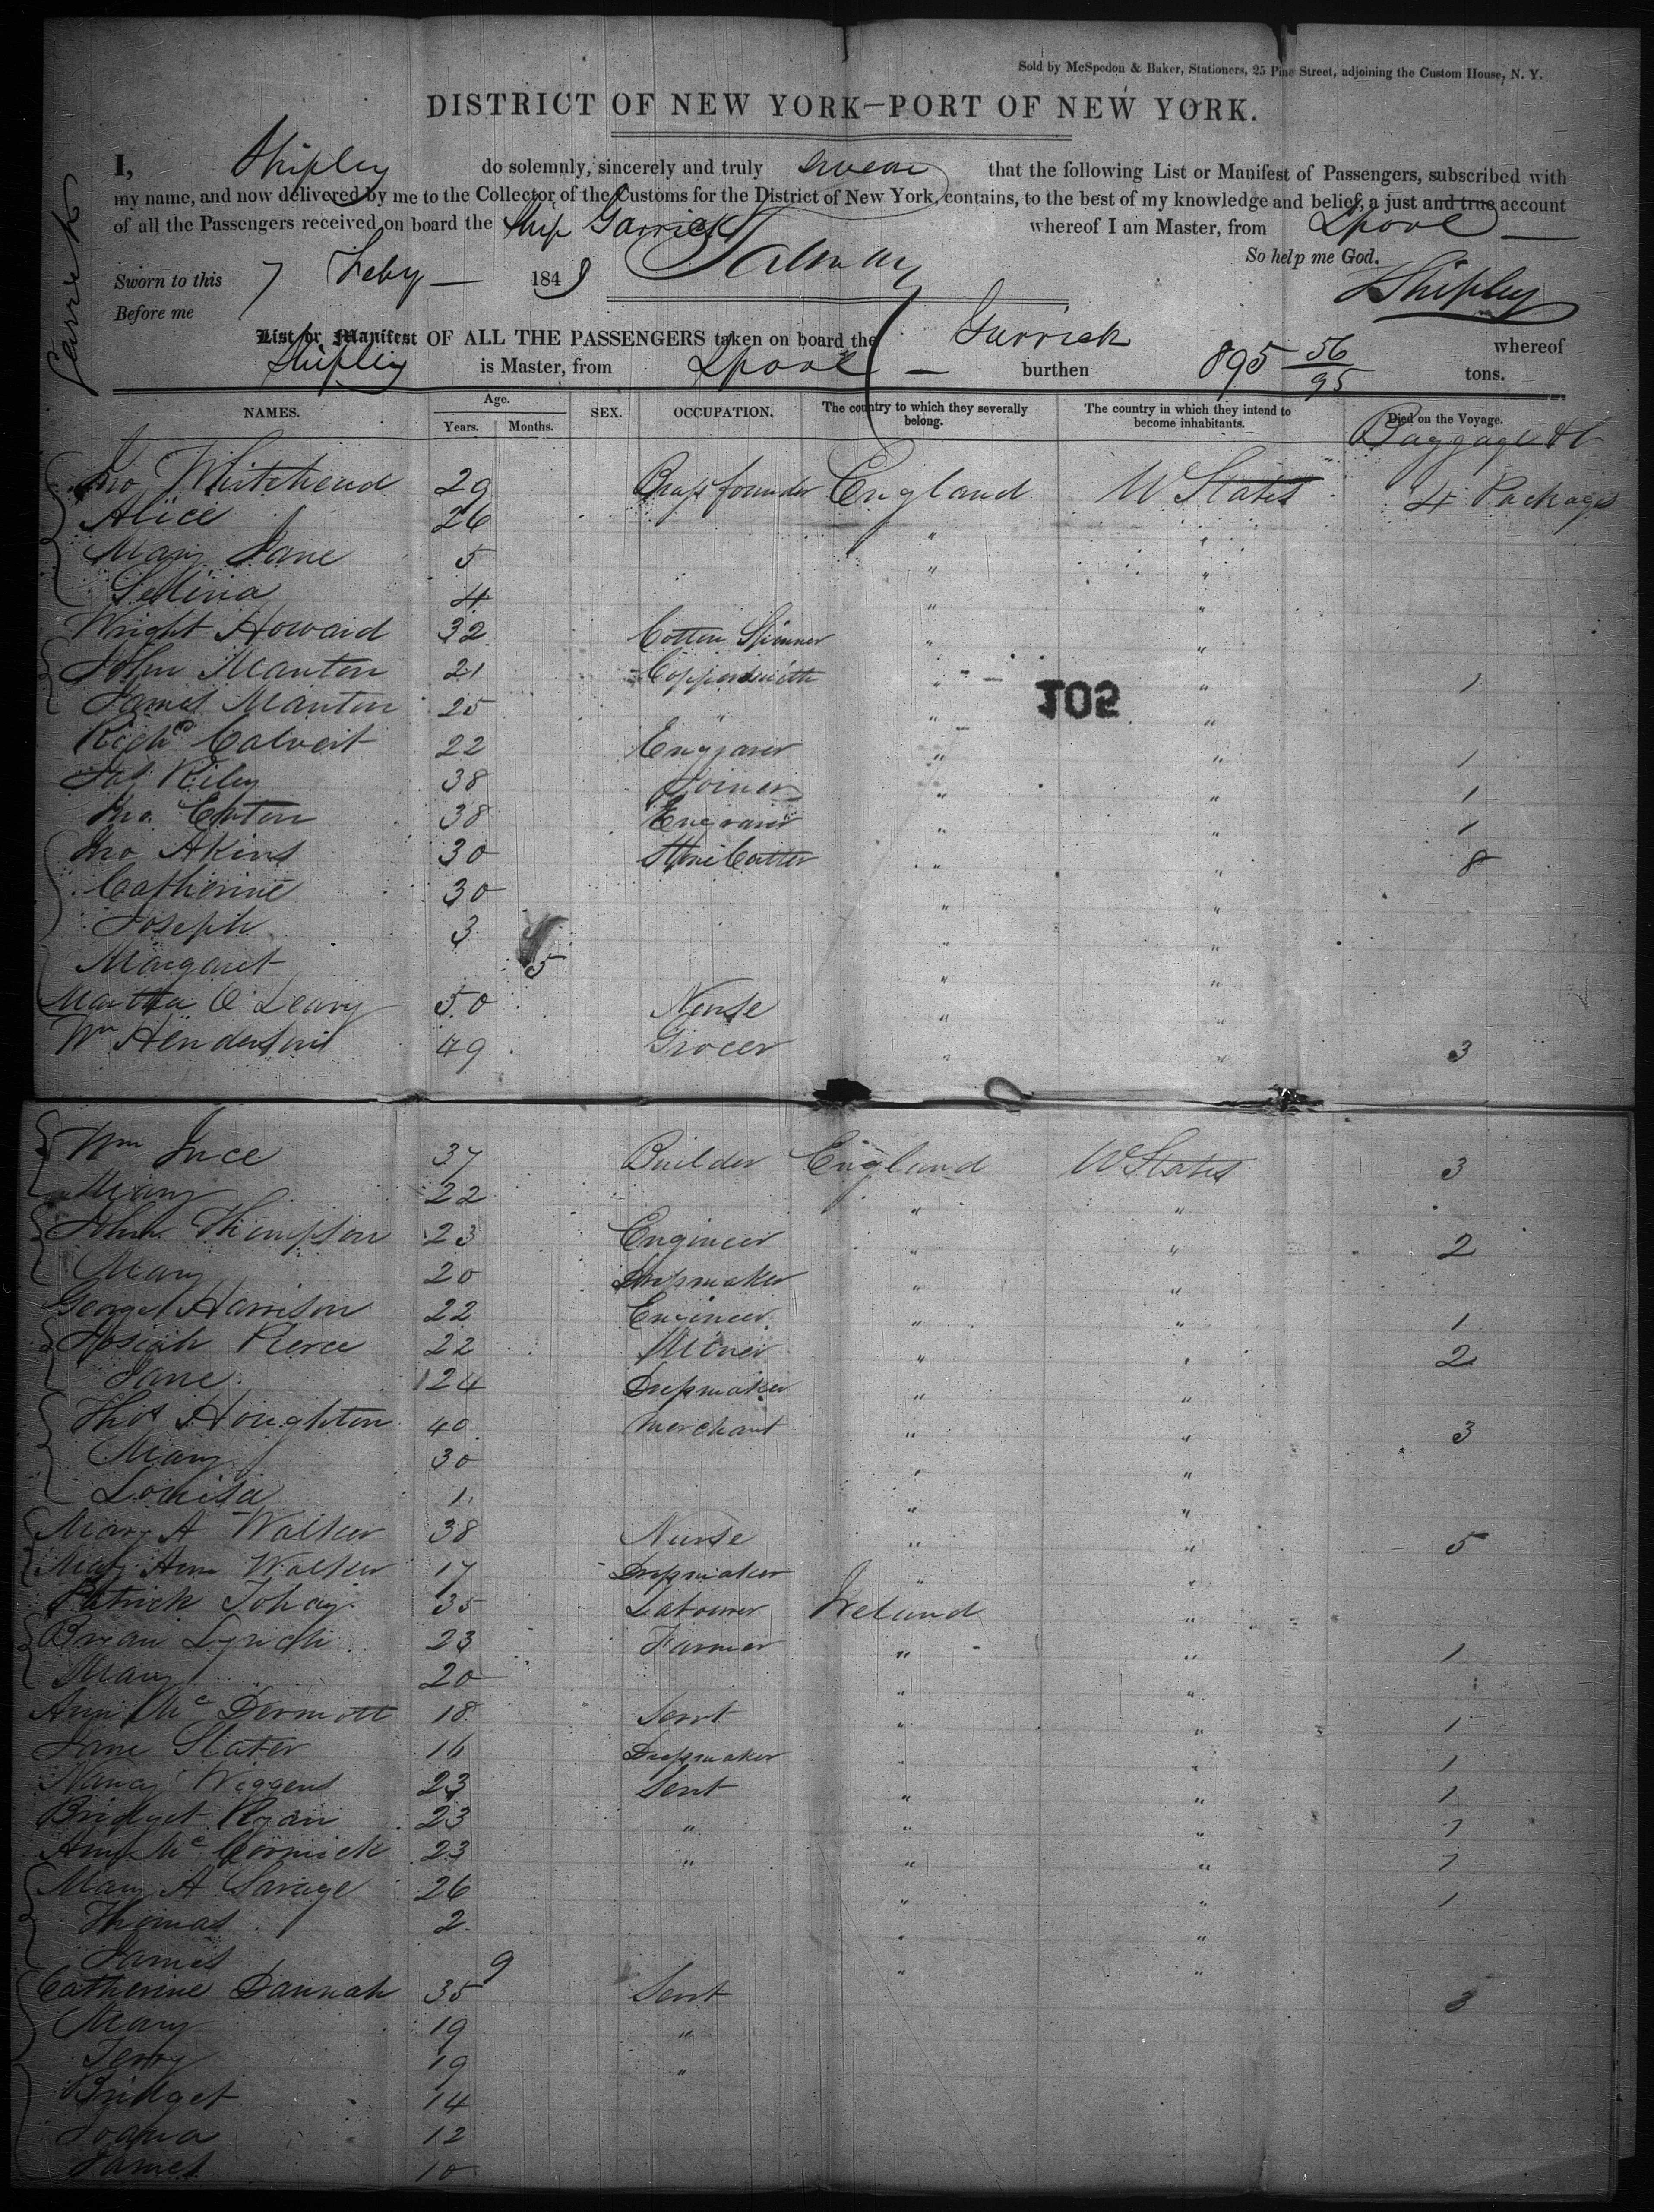 Sold by McSpedon & Baker, Stationers, 25 Pine Street, adjoining the Custom House, N. Y.
DISTRICT OF NEW YORK—PORT OF NEW YORK.
I, Shipley do solemnly, sincerely and truly swear that the following List or Manifest of Passengers, subscribed with
my name, and now delivered by me to the Collector of the Customs for the District of New York, contains, to the best of my knowledge and belief, a just and true account
of all the Passengers received on board the Ship Garrick whereof I am Master, from Lpool
So help me God.
Sworn to this 7 Feby 1849
Shipley
Before me
List or Manifest OF ALL THE PASSENGERS taken on board the Garrick whereof
Shipley is Master, from Lpool burthen 895 56/95 tons.
NAMES. Age. Years. Months. SEX. OCCUPATION. The country to which they severally belong. The country in which they intend to become inhabitants. Died on the Voyage.
Baggage &c
Jno Whitehead 29 Brass founder England U States 4 Packages
Alice 26 " "
Mary Jane 5 " "
Selina 4 " "
Wright Howard 32 Cotton Spinner " "
John Manton 21 Coppersmith " " 1
James Manton 25 " " "
Richd Calvert 22 Engraver " " 1
Jas Riley 38 Joiner " " 1
Jno Eaton 38 Engraver " " 1
Jno Akins 30 Stone Cutter " " 8
Catherine 30 " "
Joseph 3 " "
Margaret 5 " "
Martha O Leary 50 Nurse " "
Wm Henderson 49 Grocer " " 3
Wm Ince 37 Builder England U States 3
Mary 22 " "
John Thompson 23 Engineer " " 2
Mary 20 Dressmaker " "
George Harrison 22 Engineer " " 1
Josiah Pierce 22 Miner " " 2
Jane 24 Dressmaker " "
Thos Houghton 40 Merchant " " 3
Mary 30 " "
Louisa 1 " "
Mary A Walker 38 Nurse " " 5
Mary Ann Walker 17 Dressmaker " "
Patrick 35 Labourer Ireland "
Bryan Lynch 23 Farmer " " 1
Mary 20 " "
Ann Mc Dermott 18 Servt " " 1
Jane Slater 16 Dressmaker " " 1
Nancy Wiggens 23 Servt " " 1
Bridget Ryan 23 " " " 1
Ann Mc Cormick 23 " " " 1
Mary A Savage 26 " " 1
Thomas 2 " "
James 9 " "
Catherine Dannah 35 Servt 3
Mary 19 "
Terry 19 "
Bridget 14
Joana 12
James 10